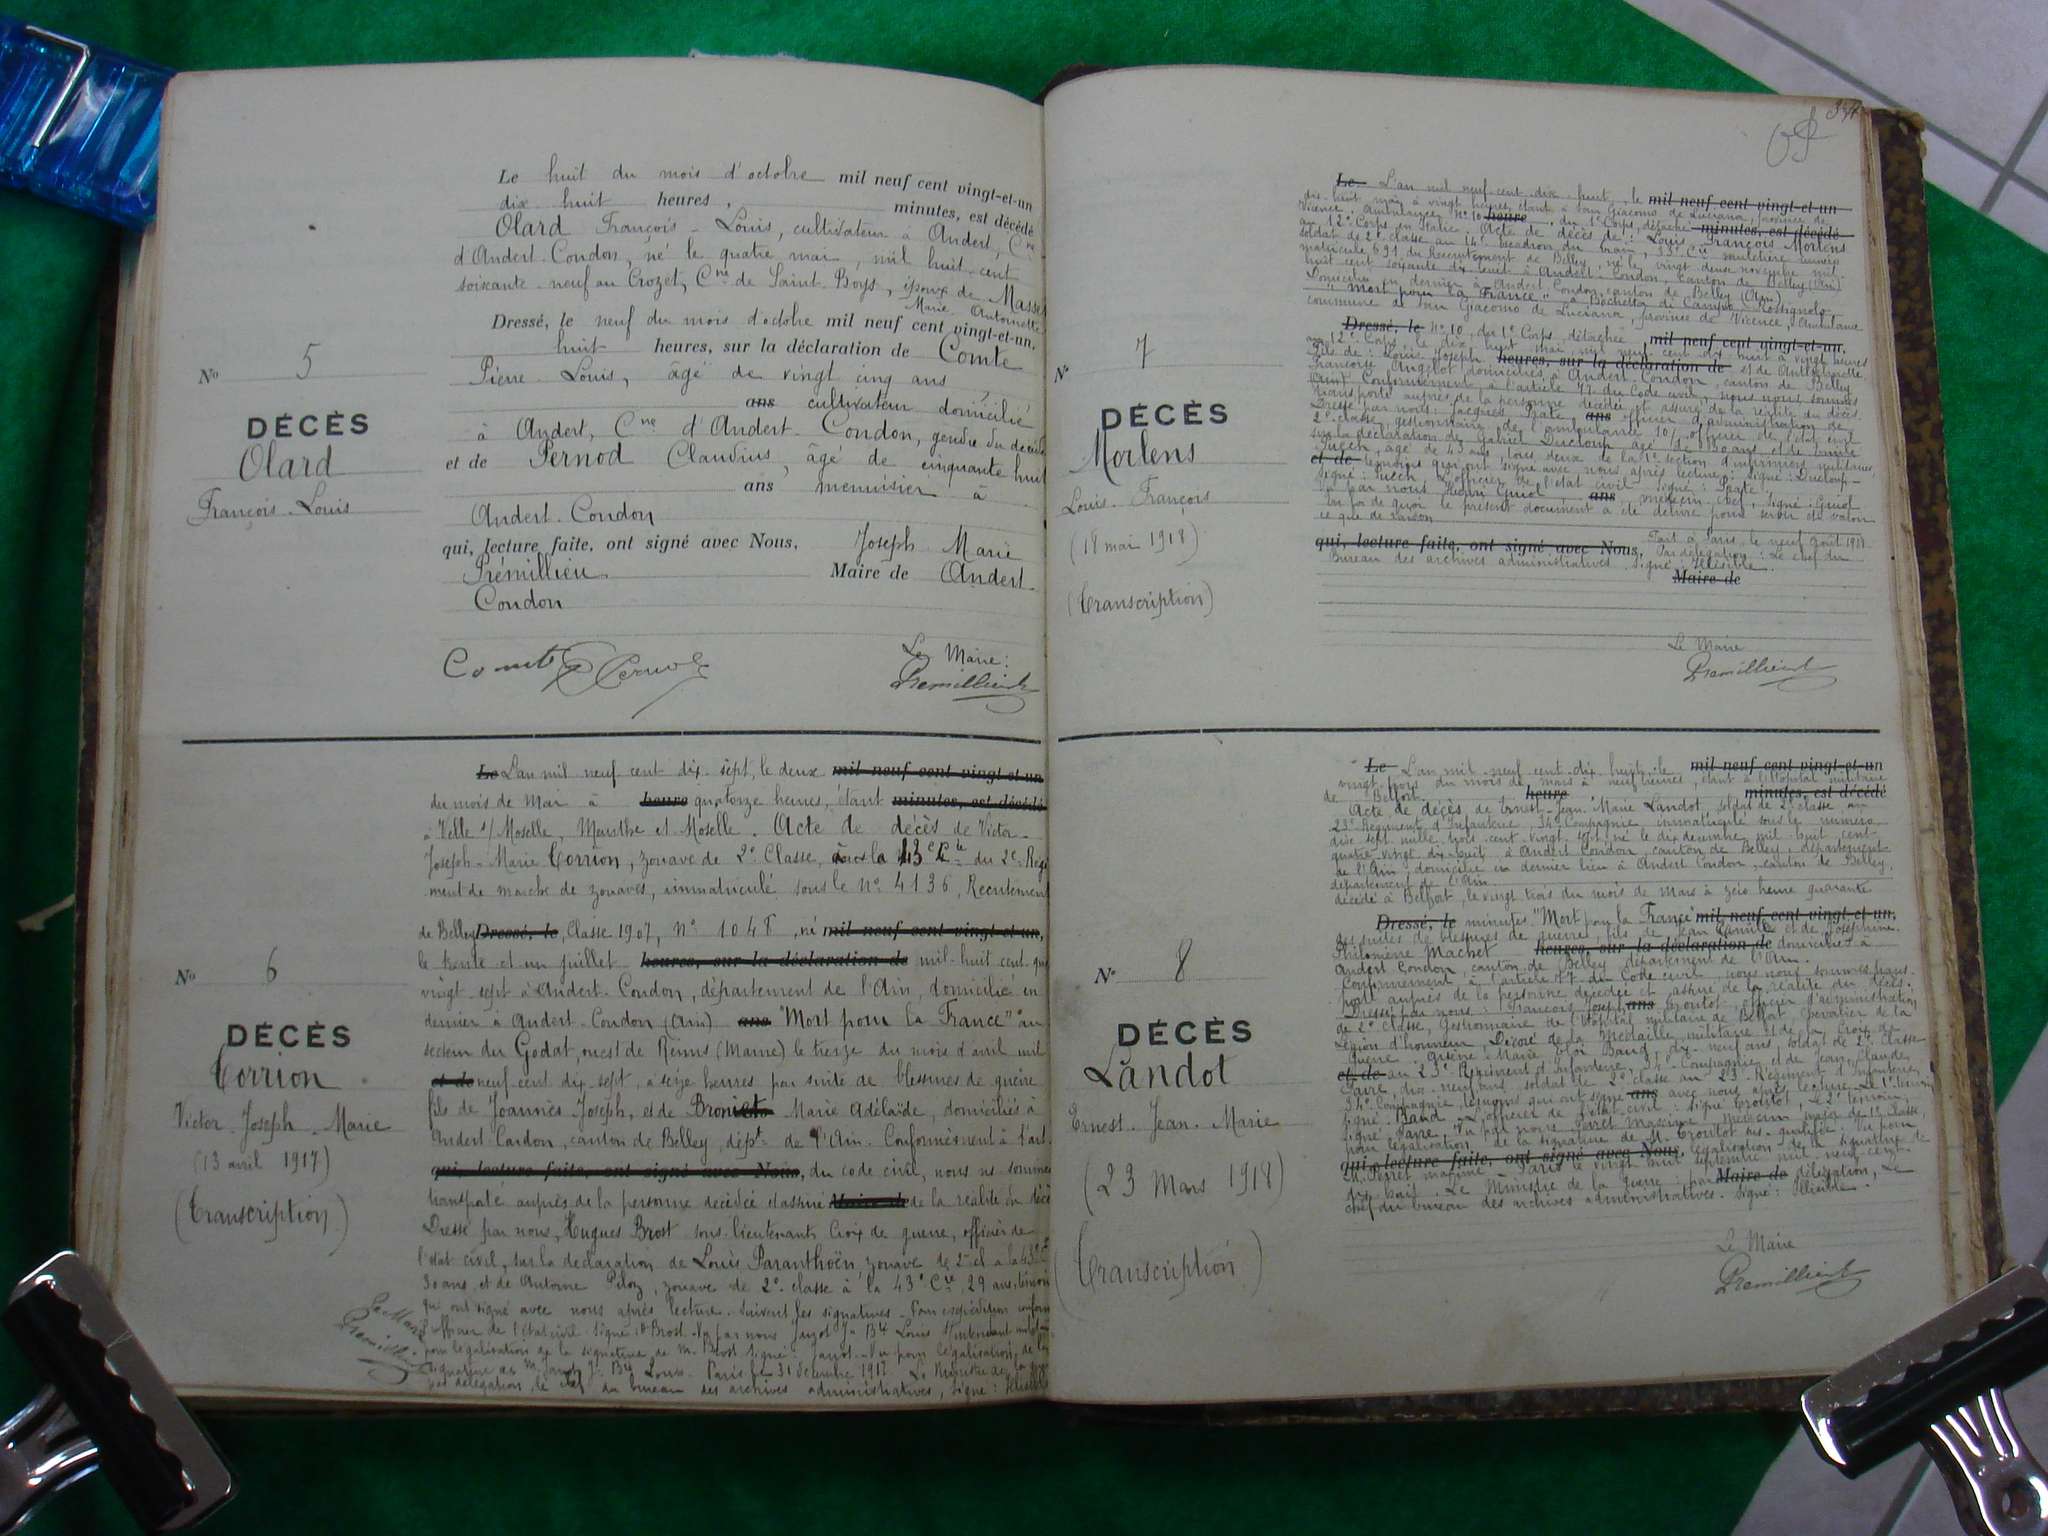 Le huit du mois d'octobre mil neuf cent vingt-et-un
dix huit heures, minutes, est décédé
Olard François-Louis, cultivateur à Andert, Cne
d'Andert-Condon, né le quatre mai, mil huit cent
soixante-neuf au Crozet, Cne de Saint-Boys, époux de Masse
Marie Antoinette
Dressé, le neuf du mois d'octobre mil neuf cent vingt-et-un.
huit heures, sur la déclaration de Comte
Pierre-Louis, âgé de vingt cinq ans
ans cultivateur domicilié
à Andert, Cne d'Andert-Condon, gendre du décédé
et de Pernod Claudius, âgé de cinquante huit
ans menuisier à
Andert-Condon
qui, lecture faite, ont signé avec Nous, Joseph Marie
Prémillieu Maire de Andert-
Condon
No 5
DÉCÈS
Olard
François-Louis
Comte Pernod
Le Maire:
Premillieu
Le L'an mil neuf cent dix-sept, le deux mil neuf cent vingt-et-un
du mois de Mai à heure quatorze heures, étant minutes, est décédé
à Velle s/ Moselle, Meurthe et Moselle. Acte de décès de Victor-
Joseph-Marie Corrion, zouave de 2e Classe, à la 43e Cie du 2e Régi
ment de marche de zouaves, immatriculé sous le No 4136, Recrutement
de Belley Dressé, le, Classe 1907, No 1048, né mil neuf cent vingt-et-un,
le trente et un juillet heures, sur la déclaration de mil-huit cent qua
vingt sept à Andert-Condon, département de l'Ain, domicilié en
dernier à Andert-Condon (Ain) ans "Mort pour la France" au
secteur du Godat, ouest de Reims (Marne) le treize du mois d'avril mil
et de neuf cent dix-sept, à seize heures, par suite de blessures de guerre
fils de Joannès Joseph, et de Marie Adélaïde, domiciliés à
Andert Condon, canton de Belley, dépt de l'Ain. Conformément à l'art.
qui, lecture faite, ont signé avec Nous, du code civil, nous ns sommes
transporté auprès de la personne décédée et assuré Maire de de la réalité du décès
Dressé par nous, Hugues Brost sous-lieutenant, Croix de guerre, officier de
l'état civil, sur la déclaration de Louis Paranthoën, zouave de 2e cl à la 43e Cie
30 ans, et de Antoine Piloz, zouave de 2e classe à la 43e Cie, 29 ans, témoins
qui ont signé avec nous après lecture. Suivent les signatures. Pour expédition conforme
L'officier de l'état civil. Signé: H Brost. Vu par nous Jayot Jn Bte Louis S/intendant
pour légalisation de la signature de M. Brost Signé: Jayot. Vu pour légalisation de la
signature de M. Jayot Jn Bte Louis. Paris le 31 décembre 1917. Le Ministre de la guerre
par délégation, le chef du bureau des archives administratives, Signé: Illisible
No 6
DÉCÈS
Corrion
Victor-Joseph-Marie
(13 avril 1917)
(Transcription)
Le Maire
Premillieu
Le L'an mil neuf cent dix-huit, le mil neuf cent vingt-et-un
dix-huit mai à vingt heures, étant à San Giacomo de Luciana, province de
Vicence, Ambulance No 10 heure du 1er Corps, détaché minutes, est décédé
au 12e Corps en Italie. Acte de décès de: Louis François Morlens
soldat de 2e classe au 14e escadron du train, 33e Cie muletière, numéro
matricule 691 du Recrutement de Belley, né le vingt deux novembre mil
huit cent soixante dix huit à Andert-Condon, Canton de Belley (Ain)
Domicilié en dernier à Andert Condon, canton de Belley (Ain)
"Mort pour la France" à Bochetta di Campo, Rossignolo,
commune de San Giacomo de Luciana, province de Vicence, Ambulance
Dressé, le No 10, du 1er Corps, détachée mil neuf cent vingt-et-un.
au 12e Corps, le dix huit mai mil neuf cent dix huit à vingt heures
Fils de: Louis Joseph heures, sur la déclaration de et de Antoinette
Françoise Angelot domiciliés à Andert-Condon, canton de Belley
(Ain) Conformément à l'article 77 du Code civil, nous nous sommes
transporté auprès de la personne décédée et assuré de la réalité du décès.
Dressé par nous, Jacques Prate, ans officier d'administration de
2e classe, gestionnaire de l'ambulance 10/1, officier de l'état civil
sur la déclaration de Gabriel Ducloup âgé de 30 ans, et de
Puech, âgé de 43 ans, tous deux de la section d'infirmiers militaires
et de témoins qui ont signé avec nous après lecture. Signé: Ducloup-
Signé: Puech. L'officier de l'état civil. Signé: Prate
Vu par nous Henri Guiol ans médecin chef, signé: Guiol
En foi de quoi le présent document a été délivré pour servir et valoir
ce que de raison
qui, lecture faite, ont signé avec Nous, Fait à Paris, le neuf Août 1918
Par délégation: Le chef du
Bureau des archives administratives. Signé: Illisible.
Maire de
No 7
DÉCÈS
Morlens
Louis-François
(18 mai 1918)
(Transcription)
Le Maire
Premillieu
Le L'an mil neuf cent dix huit, le mil neuf cent vingt-et-un
vingt trois du mois de mars à neuf heures, étant à l'Hôpital militaire
de Belfort. heure minutes, est décédé
Acte de décès de Ernest-Jean-Marie Landot, soldat de 2e classe au
23e Régiment d'Infanterie, 34e Compagnie immatriculé sous le numéro
dix sept mille trois cent vingt sept, né le dix décembre mil huit cent
quatre vingt dix huit à Andert Condon, canton de Belley, département
de l'Ain, domicilié en dernier lieu à Andert Condon, canton de Belley,
département de l'Ain
décédé à Belfort, le vingt trois du mois de Mars à zéro heure quarante
Dressé, le minutes "Mort pour la France" mil neuf cent vingt-et-un.
des suites de blessures de guerre, fils de Jean Camille et de Joséphine
Philomène Machet heures, sur la déclaration de domiciliés à
Andert Condon, canton de Belley, département de l'Ain.
Conformément à l'article 77 du Code civil nous nous sommes trans-
porté auprès de la personne décédée et assuré de la réalité du décès.
Dressé par nous: François Joseph ans Croutot, officier d'administration
de 2e classe, Gestionnaire de l'Hôpital militaire de Belfort, Chevalier de la
Légion d'honneur, Décoré de la Médaille militaire et de la Croix de
Guerre Marie Eloi Baud, dix-neuf ans, soldat de 2e Classe
et de au 23e Régiment d'Infanterie, 34e Compagnie et de Jean Claude
Favre, dix-neuf ans, soldat de 2e classe au 23e Régiment d'Infanterie,
34e Compagnie, témoins qui ont signé ans avec nous après lecture. Le 1er témoin,
signé: Baud L'officier de l'état civil: Signé Croutot, Le 2e témoin,
signé: Favre. Vu par nous Perret Maxime Médecin major de 1e Classe,
pour légalisation de la signature de M. Croutot sus-qualifié. Vu pour
qui, lecture faite, ont signé avec Nous, légalisation de la signature de
M. Perret maxime. Paris le vingt huit septembre mil neuf cent
dix huit. Le Ministre de la Guerre: par Maire de délégation, Le
chef du bureau des archives administratives. Signé: Illisible.
No 8
DÉCÈS
Landot
Ernest-Jean-Marie
(23 Mars 1918)
(Transcription)
Le Maire
Premillieu